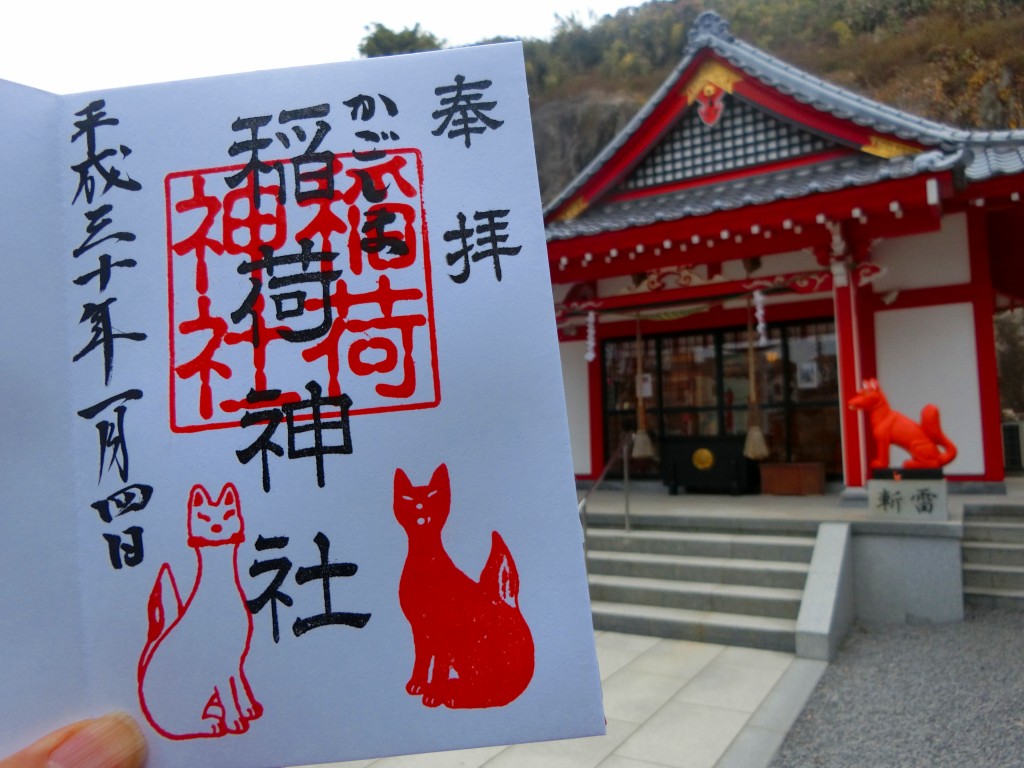 奉拝
かごしま
稲荷神社
稲荷
神社
平成三十年一月四日
斬雷